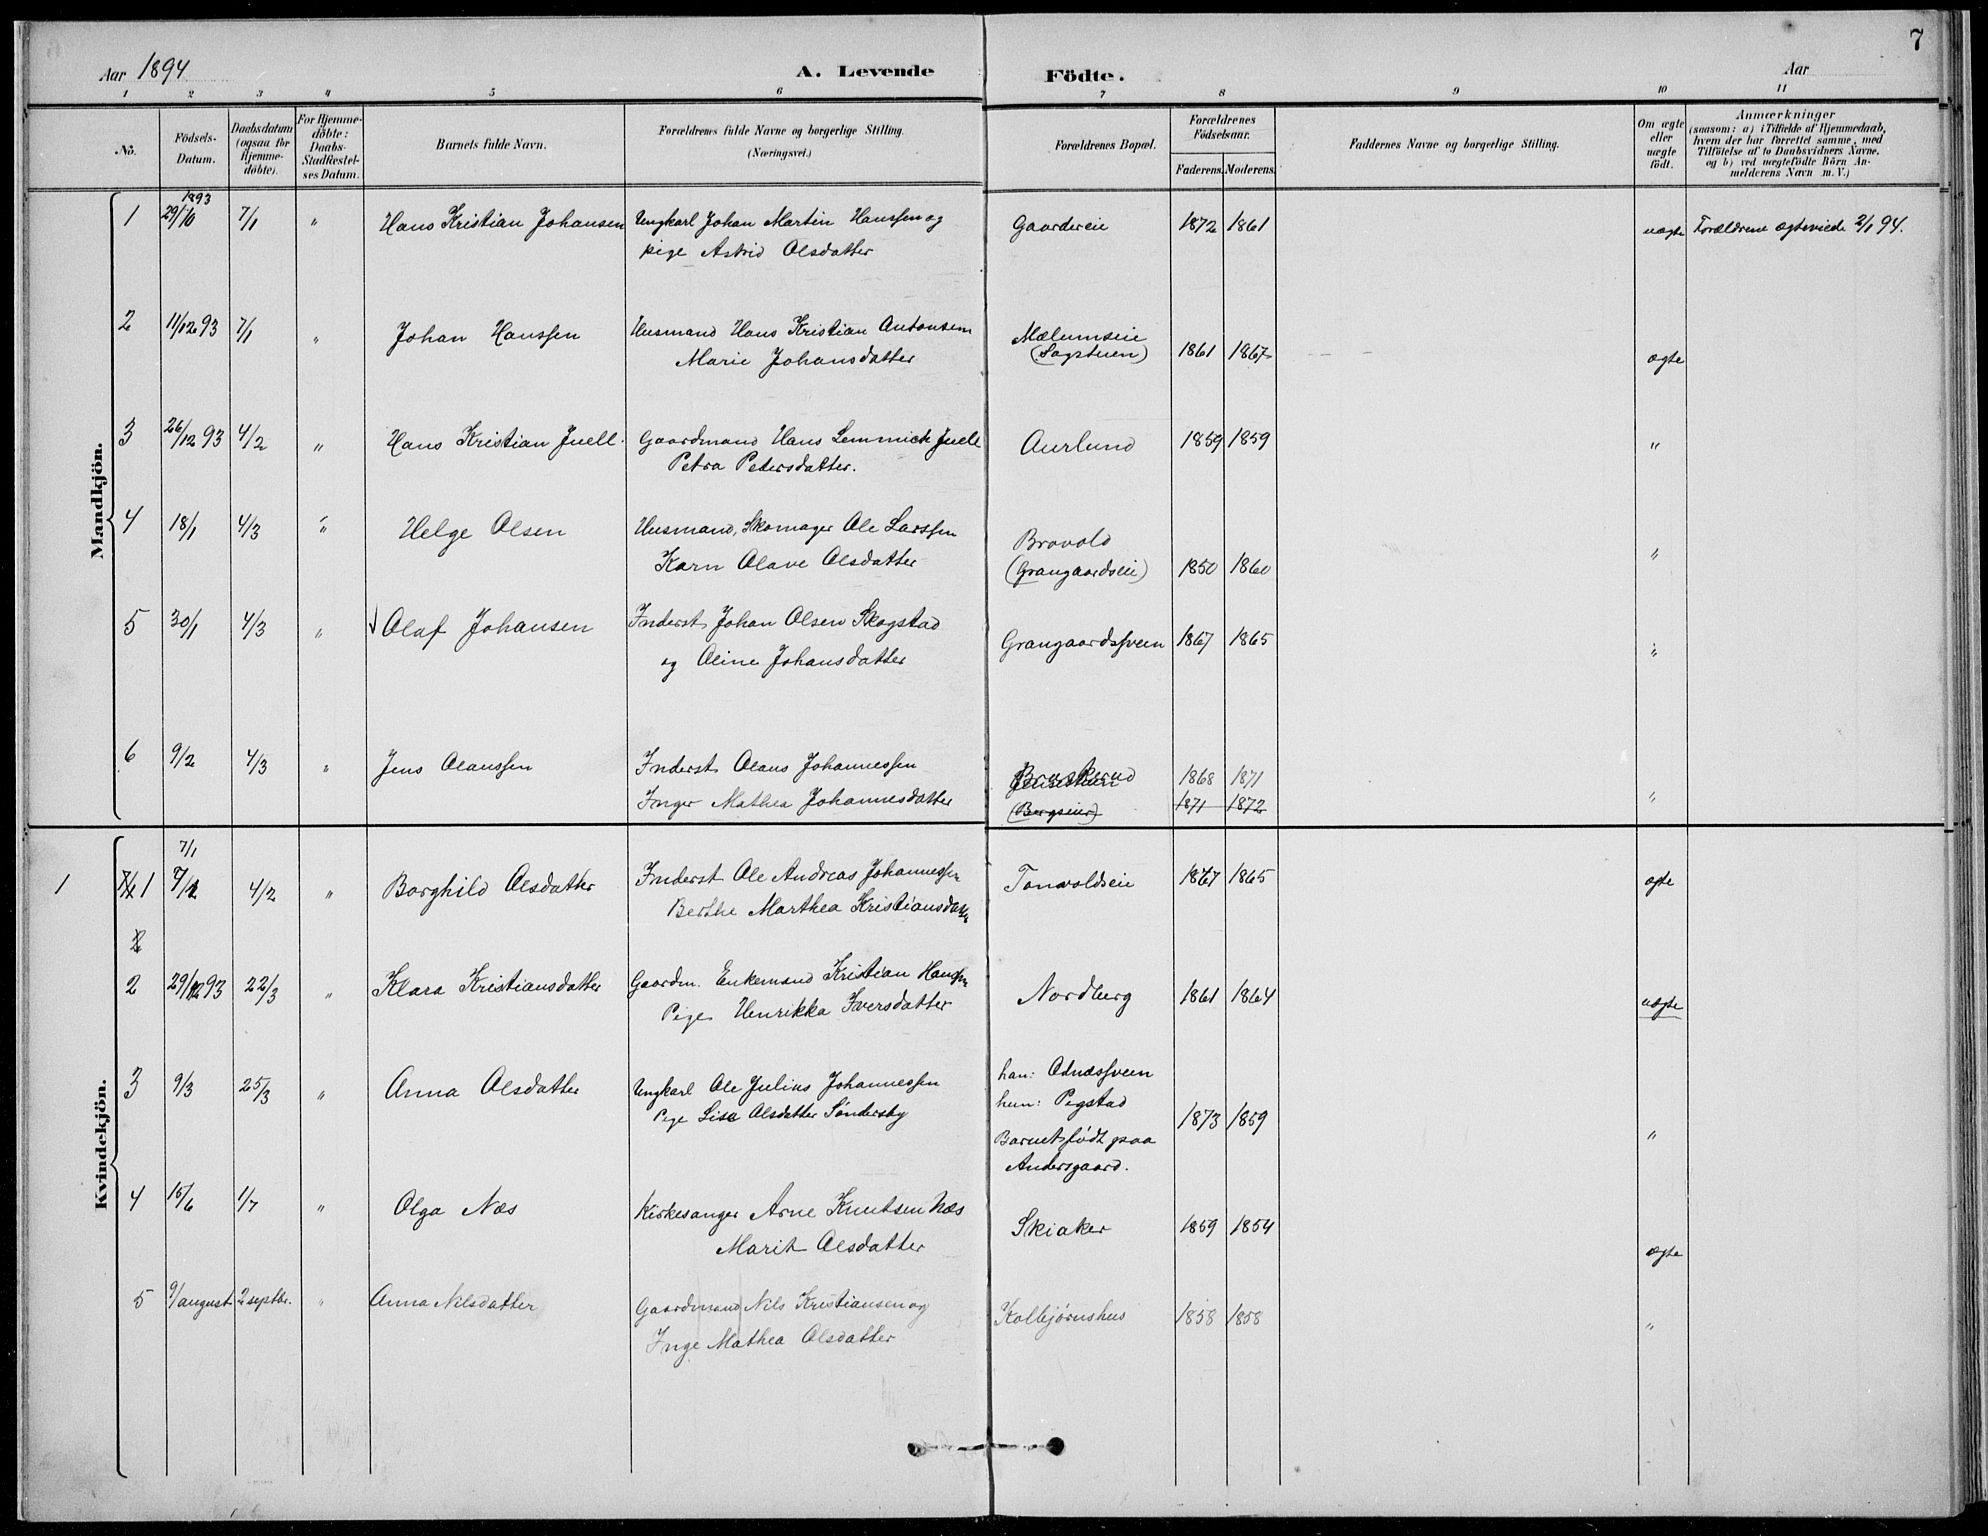 7
Aar 1894
A. Levende
Födte.
Aar
1 2 3 4 5 6 7 8 9 10 11
No.
Födsels-
Datum.
Daabsdatum
(ogsaa for
Hjemme-
döbte).
For Hjemme-
döbte:
Daabs-
Stadfæstel-
ses Datum.
Barnets fulde Navn.
Forældrenes fulde Navne og borgerlige Stilling.
(Næringsvei.)
Forældrenes Bopæl.
Forældrenes
Födselsaar.
Faderens. Moderens.
Faddernes Navne og borgerlige Stilling.
Om ægte
eller
uægte
födt.
Anmærkninger
(saasom: a) i Tilfælde af Hjemmedaab,
hvem der har forrettet samme, med
Tilföielse af to Daabsvidners Navne,
og b) ved uægtefödte Börn An-
melderens Navn m. V.)
Mandkjön.
1893
1 29/10 7/1 " Hans Kristian Johansen Ungkarl Johan Martin Hanssen og Gaardereie 1872 1861 uægte Forældrene ægteviede 2/1 94.
pige Astrid Olsdatter
2 11/12 93 7/1 " Johan Hanssen Husmand Hans Kristian Antonsen Mælumseie
Marie Johansdatter (Sagstuen) 1861 1867 ægte
3 26/12 93 4/2 " Hans Kristian Juell. Gaardmand Hans Lemmich Juell Aurlund 1859 1859 "
Petra Petersdatter.
4 18/1 4/3 " Helge Olsen Husmand, Skomager Ole Larssen Brovold
Karn Olave Olsdatter (Grangaardseie) 1850 1860 "
5 30/1 4/3 " Olaf Johansen Inderst Johan Olsen Skogstad Grangaardssveen 1867 1865 "
og Oline Johansdatter
6 9/2 4/3 " Jens Olaussen Inderst Olaus Johannessen 1868 1871
Inger Mathea Johannesdatter (Bergseie) 1871 1872 "
Kvindekjön.
7/1
1 1 7/2 4/2 " Borghild Olsdatter Inderst Ole Andreas Johannessen Tonvoldseie 1867 1865 ægte
Berthe Marthea Kristiansdatter
2
2 29/12 93 22/3 " Klara Kristiansdatter Gaardm. Enkemand Kristian Hanssen Nordberg 1861 1864 uægte
Pige Henrikka Iversdatter
3 9/3 25/3 " Anna Olsdatter Ungkarl Ole Julius Johannessen han: Odnæssveen
Pige Lise Olsdatter Søndersby hun: Pegstad 1873 1859
Barnet født paa "
Andersgaard.
4 15/6 1/7 " Olga Næs Kirkesanger Arne Knutsen Næs Skiaker 1859 1854
Marit Olsdatter ægte
5 9/august 2 septbr. " Anna Nilsdatter Gaardmand Nils Kristiansen og Kolbjørnshus 1858 1858 "
Inge Mathea Olsdatter